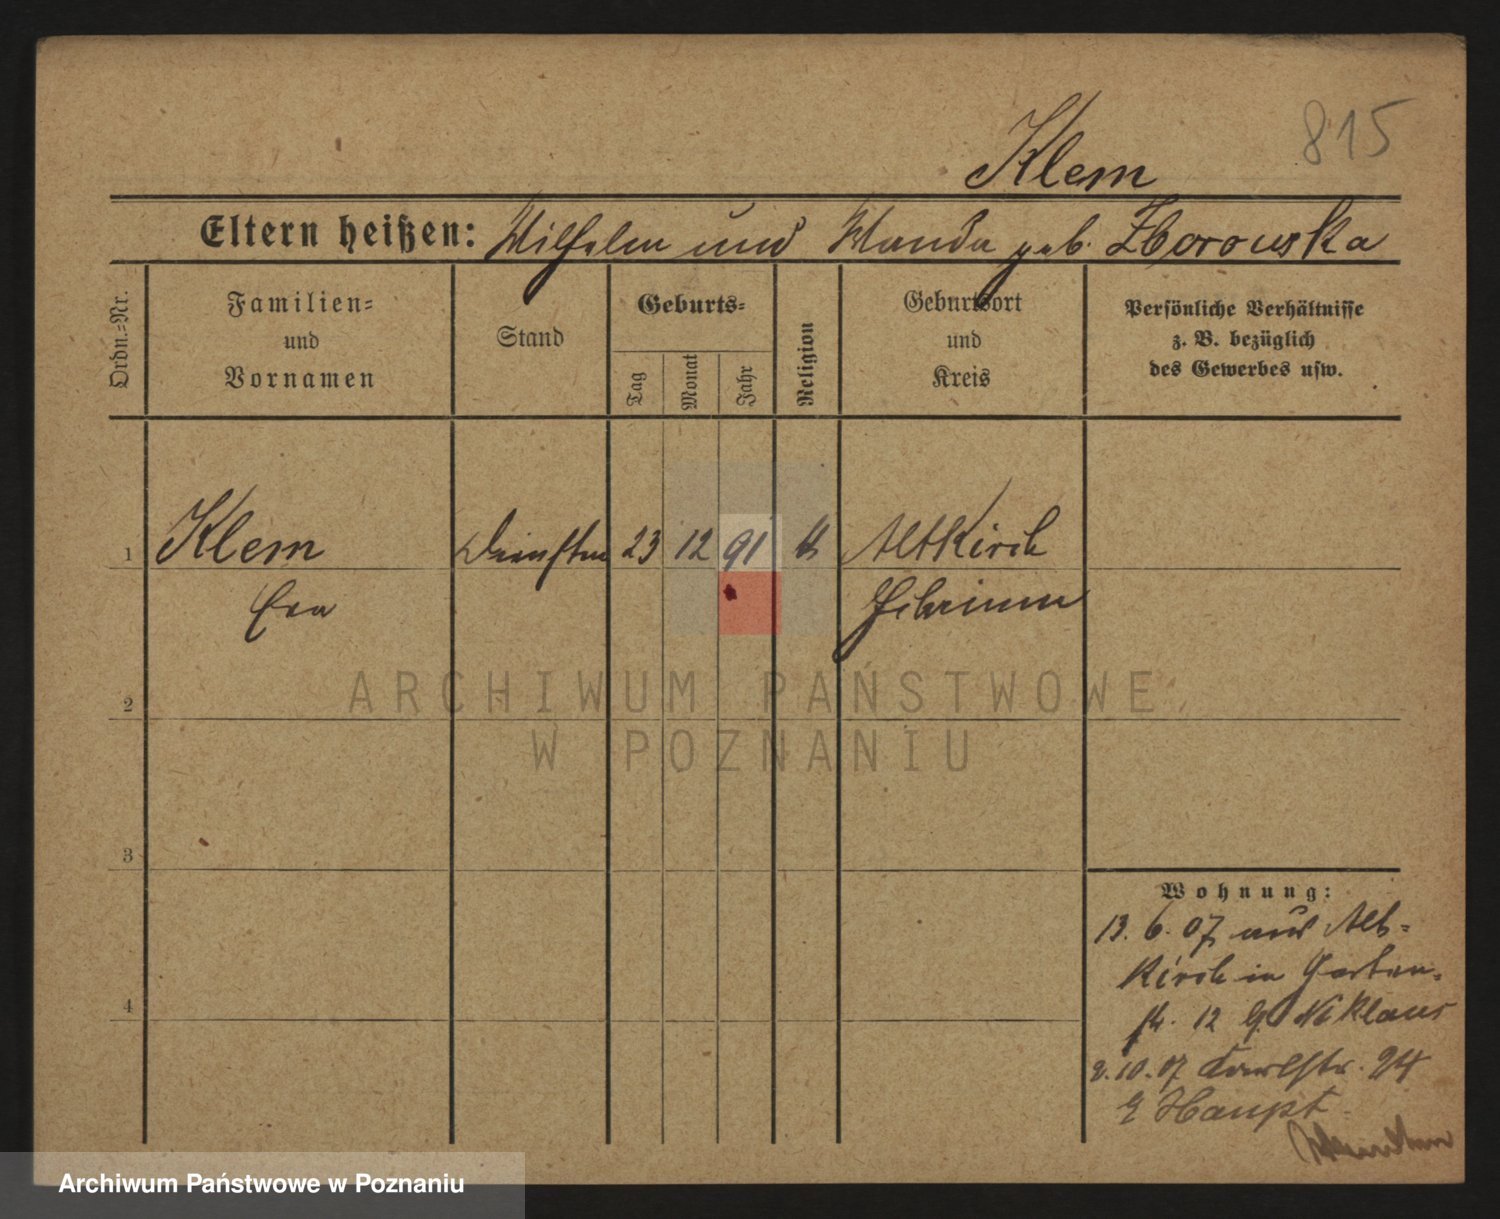 815
Klem
Eltern heißen: Wilhelm und Wanda geb. Zborowska
Ordn.=Nr.
Familien=
und
Vornamen
Stand
Geburts=
Tag
Monat
Jahr
Religion
Geburtsort
und
Kreis
Persönliche Verhältnisse
z. B. bezüglich
des Gewerbes usw.
1 Klem 23 12 91 Altkirch
Eva
2
3
4
Wohnung:
13. 6. 07 aus Alt=
kirch in Garten=
str. 12 Niklaus
2.10.07 24
Haupt
ARCHIWUM PAŃSTWOWE
W POZNANIU
Archiwum Państwowe w Poznaniu